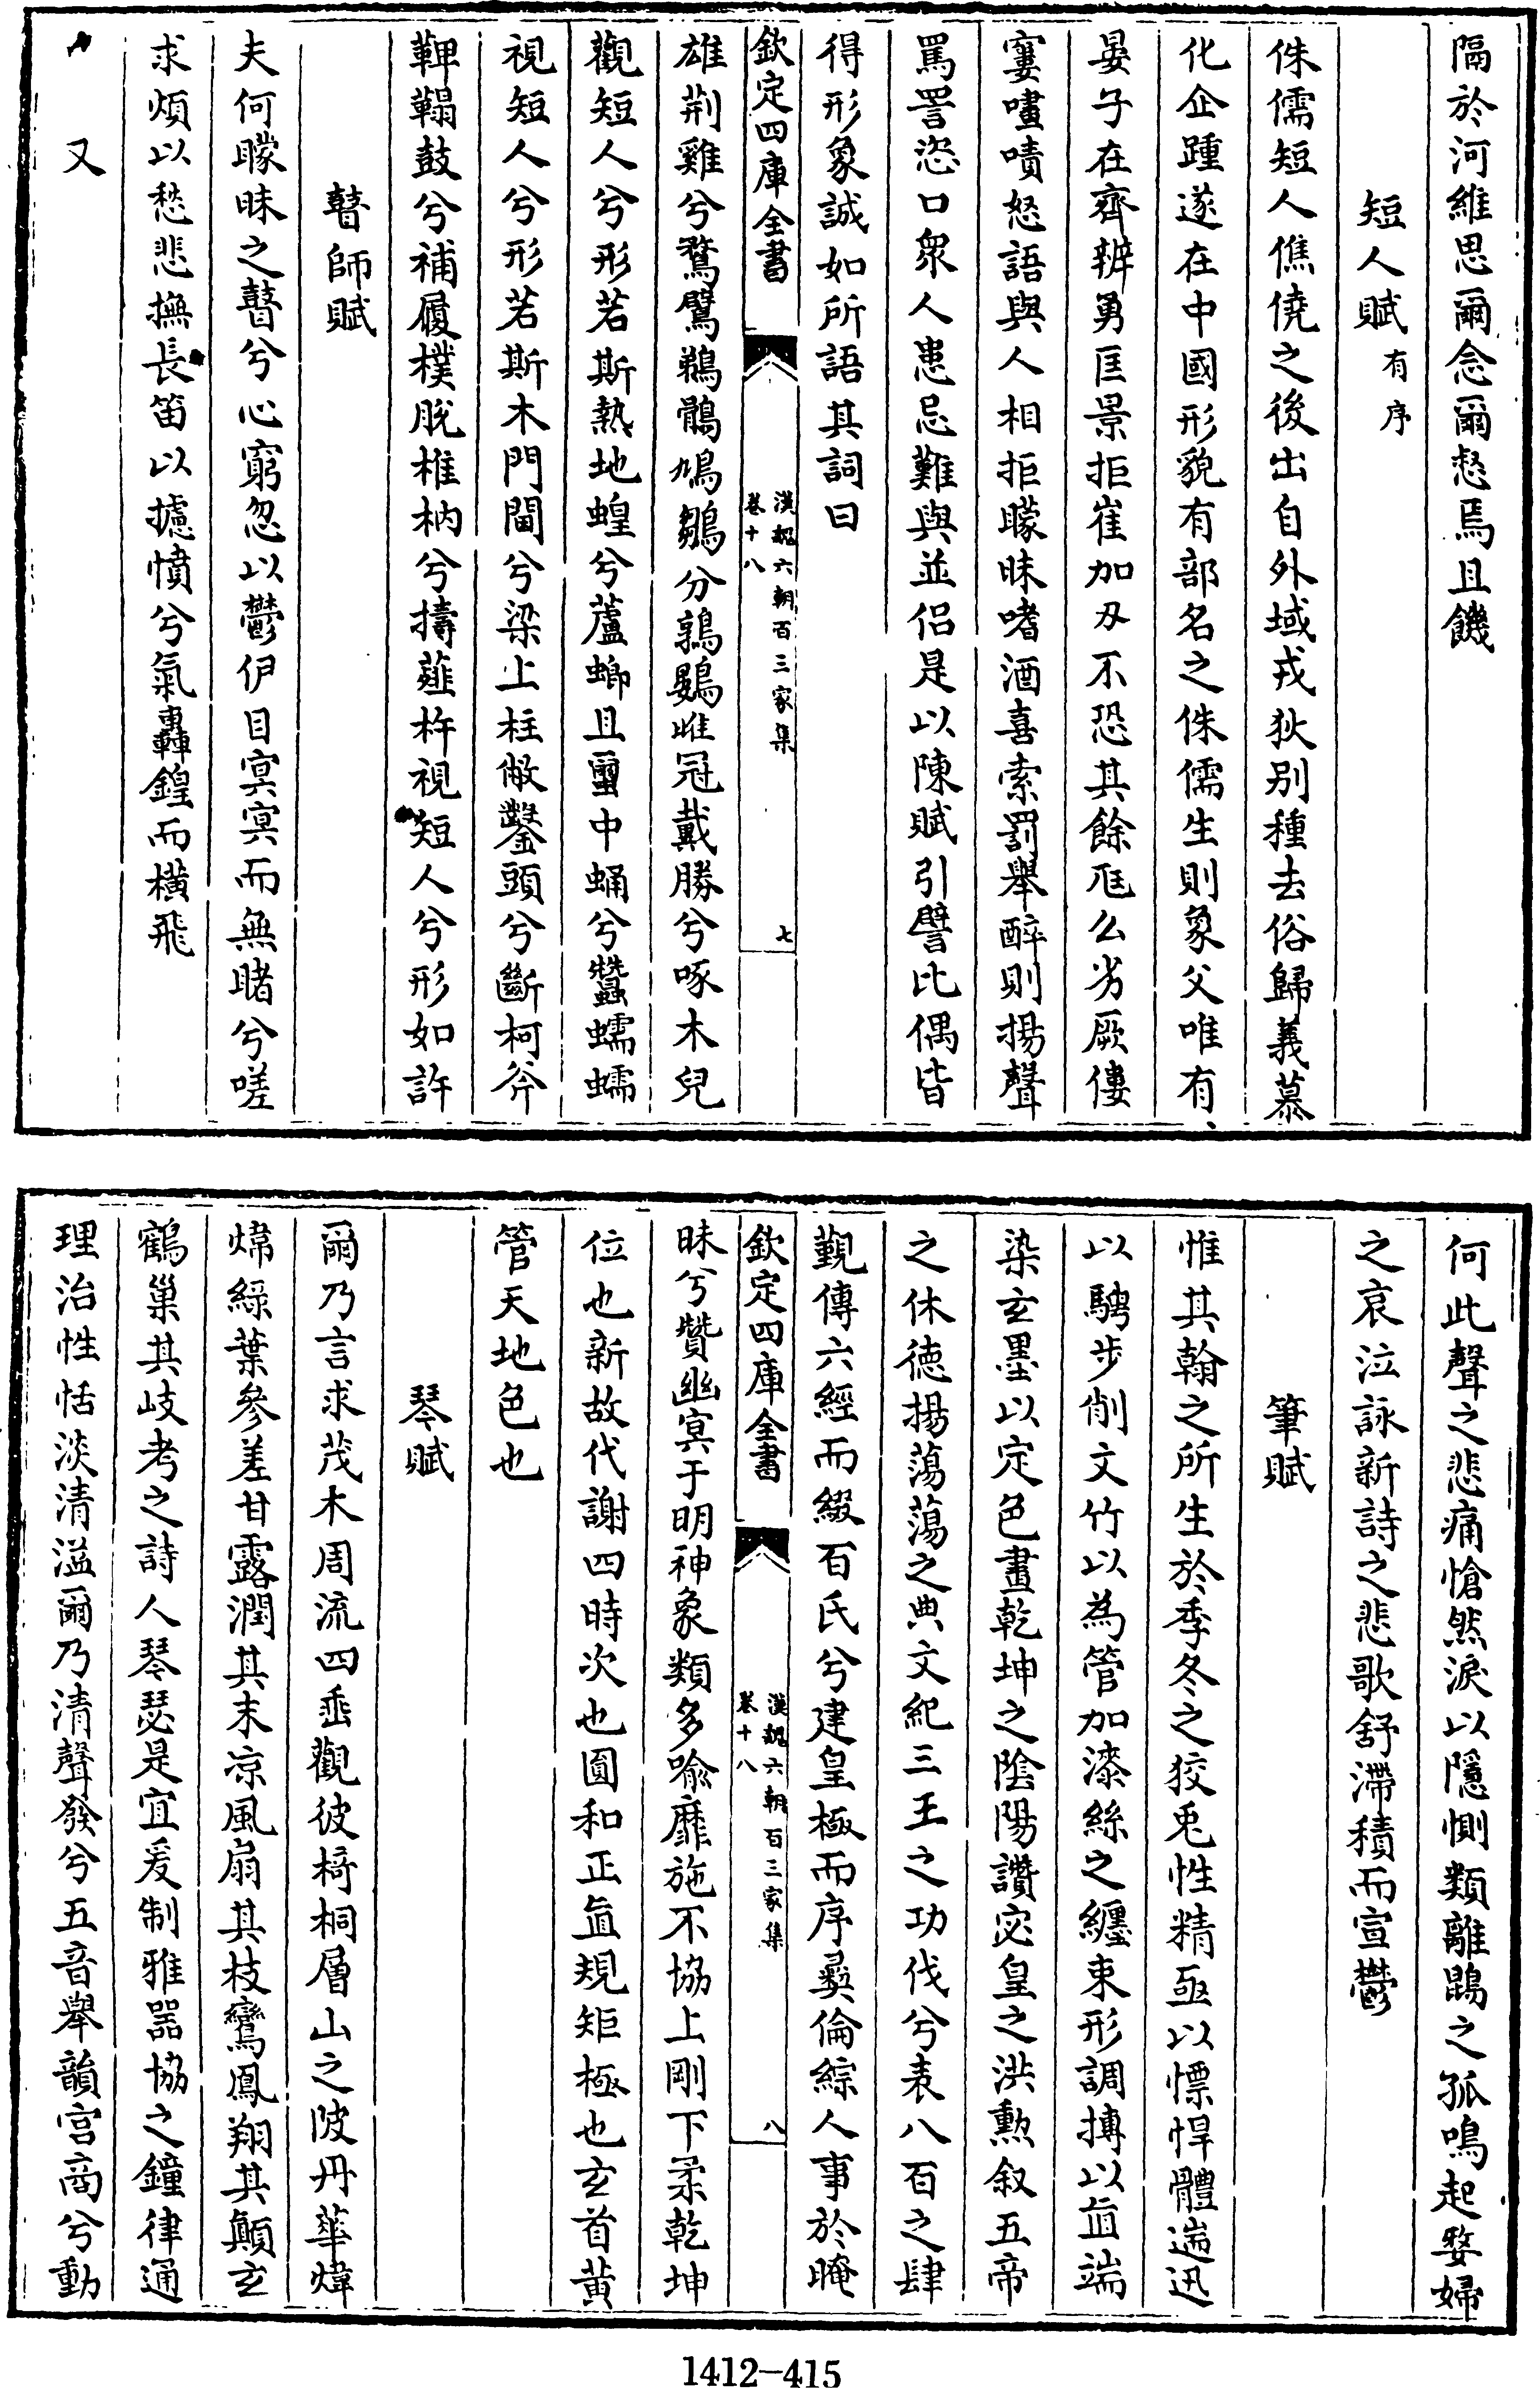 隔於河維思爾念爾惄焉且饑
短人賦有序
侏儒短人僬僥之後出自外域戎狄别種去俗歸義慕
化企踵遂在中國形貌有部名之侏儒生則象父唯有
晏子在齊辨勇匡景拒崔加刄不恐其餘尫么劣厥僂
窶嘖怒語與人相拒矇昧嗜酒喜索罰舉醉則揚聲
罵詈恣口衆人患忌難與並侣是以陳賦引譬比偶皆
得形象誠如所語其詞曰
欽定四庫全書
漢魏六朝百三家集
卷十八
七
雄荆雞兮鶩鷿鵜鶻鳩鶵兮鶉鷃雌冠戴勝兮啄木兒
觀短人兮形若斯熱地蝗兮蘆蝍且蠒中蛹兮蠶蠕蠕
視短人兮形若斯木門閫兮梁上柱敝鑿頭兮斷柯斧
鞞鞨鼓兮補履樸脱椎枘兮擣薤杵視短人兮形如許
瞽師賦
夫何矇昧之瞽兮心窮忽以鬱伊目㝠㝠而無睹兮嗟
求煩以愁悲撫長笛以攄憤兮氣轟鍠而横飛
又
何此聲之悲痛愴然淚以隱惻類離鵾之孤鳴起嫠婦
之哀泣詠新詩之悲歌舒滯積而宣鬱
筆賦
惟其翰之所生於季冬之狡兎性精亟以慓悍體遄迅
以騁步削文竹以為管加漆絲之纒束形調摶以直端
染玄墨以定色畫乾坤之陰陽讚宓皇之洪勲叙五帝
之休德揚蕩蕩之典文紀三王之功伐兮表八百之肆
覲傳六經而綴百氏兮建皇極而序彛倫綜人事於晻
欽定四庫全書
漢魏六朝百三家集
卷十八
八
昧兮贊幽㝠于明神象類多喻靡施不協上剛下柔乾坤
位也新故代謝四時次也圓和正直規矩極也玄首黄
管天地色也
琴賦
爾乃言求茂木周流四垂觀彼椅桐層山之陂丹華煒
煒緑葉參差甘露潤其末凉風扇其枝鸞鳳翔其顛玄
鶴巢其岐考之詩人琴瑟是宜爰制雅器協之鐘律通
理治性恬淡清溢爾乃清聲發兮五音舉韻宫商兮動
1412-415